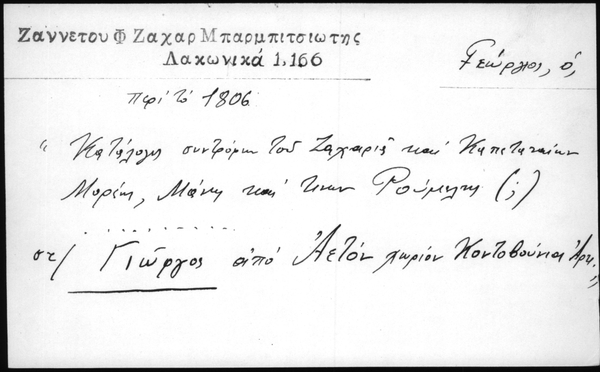 Ζαννετου Φ Ζαχαρ Μπαρμπιτσιωτης
Λακωνικά 1,166
Γεώργιος, ὁ,
περί τό 1806
"Κατάλογος συντρόφων τοῦ Ζαχαριᾶ καί Καπεταναίων
Μορέως, Μάνης καί τινων Ρούμελης (;)
. . . . . . . . . . . . .
στ/ Γιῶργος ἀπό Ἀετόν χωρίον Κοντοβούνια Ἀρκ.